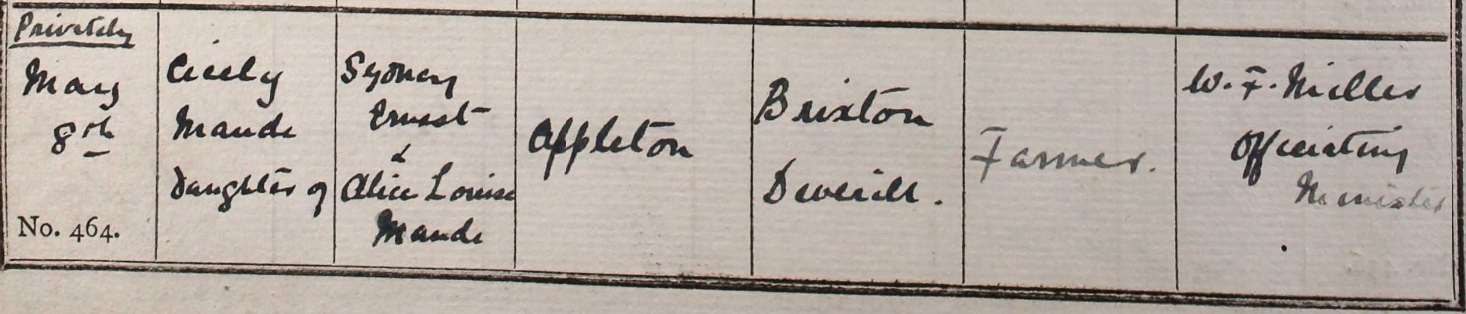 Privately
May
8th
No. 464.
Cicely
Maude
Daughter of
Sydney
Ernest
&
Alice Louise
Maude
Appleton
Brixton
Deverill.
Farmer.
W. F. Miller
Officiating
Minister